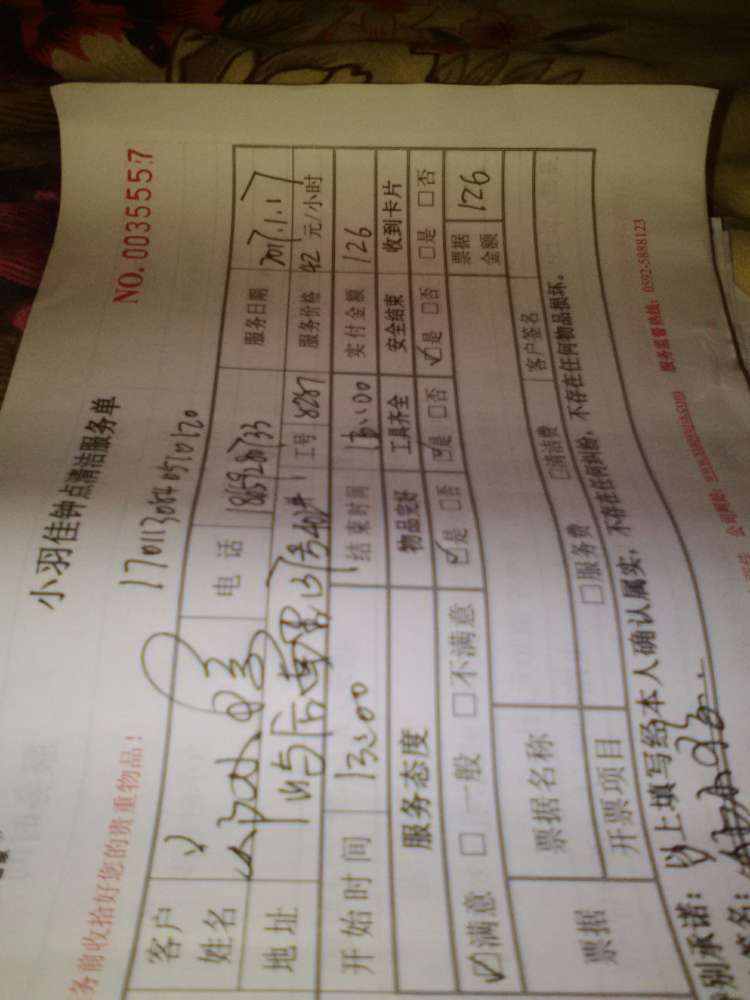 小羽佳钟点清洁服务单
NO. 0035555:7
务前收拾好您的贵重物品！
客户姓名
电话
服务日期 2017.1.17
地址
工号 8287
服务价格 42 元/小时
开始时间 13:00
结束时间
实付金额 126
服务态度 物品完好 工具齐全 安全结束 收到卡片
☑满意 □一般 □不满意 ☑是 □否 ☑是 □否 ☑是 □否 □是 □否
票据
票据名称
票据金额 126
开票项目 □服务费 □清洁费 客户签名
别承诺：以上填写经本人确认属实，不存在任何纠纷，不存在任何物品损坏。
签名：
公司网址： 服务监督热线：0592-5888123